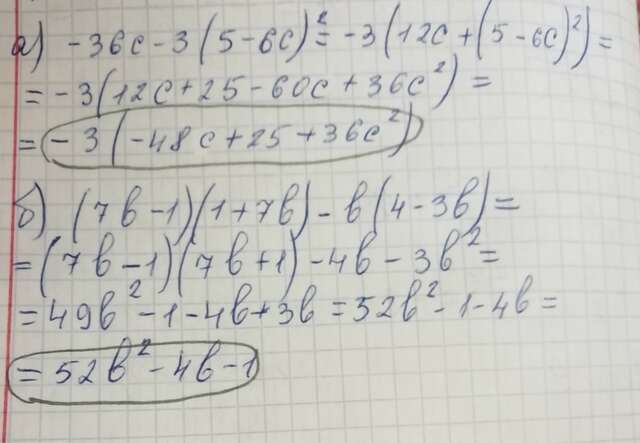 а) -36с-3(5-6с)²=-3(12с+(5-6с)²)=
=-3(12с+25-60с+36с²)=
=-3(-48с+25+36с²)
б) (7b-1)(1+7b)-b(4-3b)=
=(7b-1)(7b+1)-4b-3b²=
=49b²-1-4b+3b=52b²-1-4b=
=52b²-4b-1